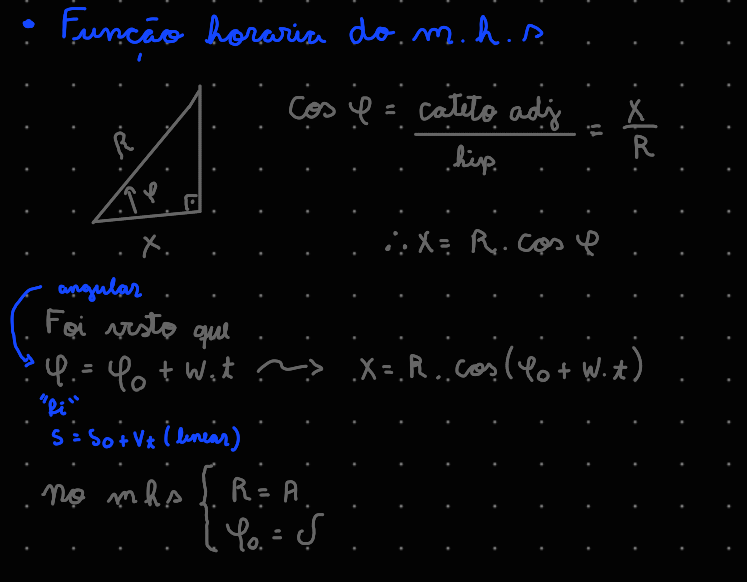 • Função horaria do m.h.s
cos φ = cateto adj / hip = X / R
R
φ
X
∴ X = R . cos φ
angular
Foi visto que
φ = φ₀ + w.t ⟿ X = R . cos (φ₀ + w.t)
"Fi"
S = S₀ + Vt (linear)
no mhs { R = A
φ₀ = δ